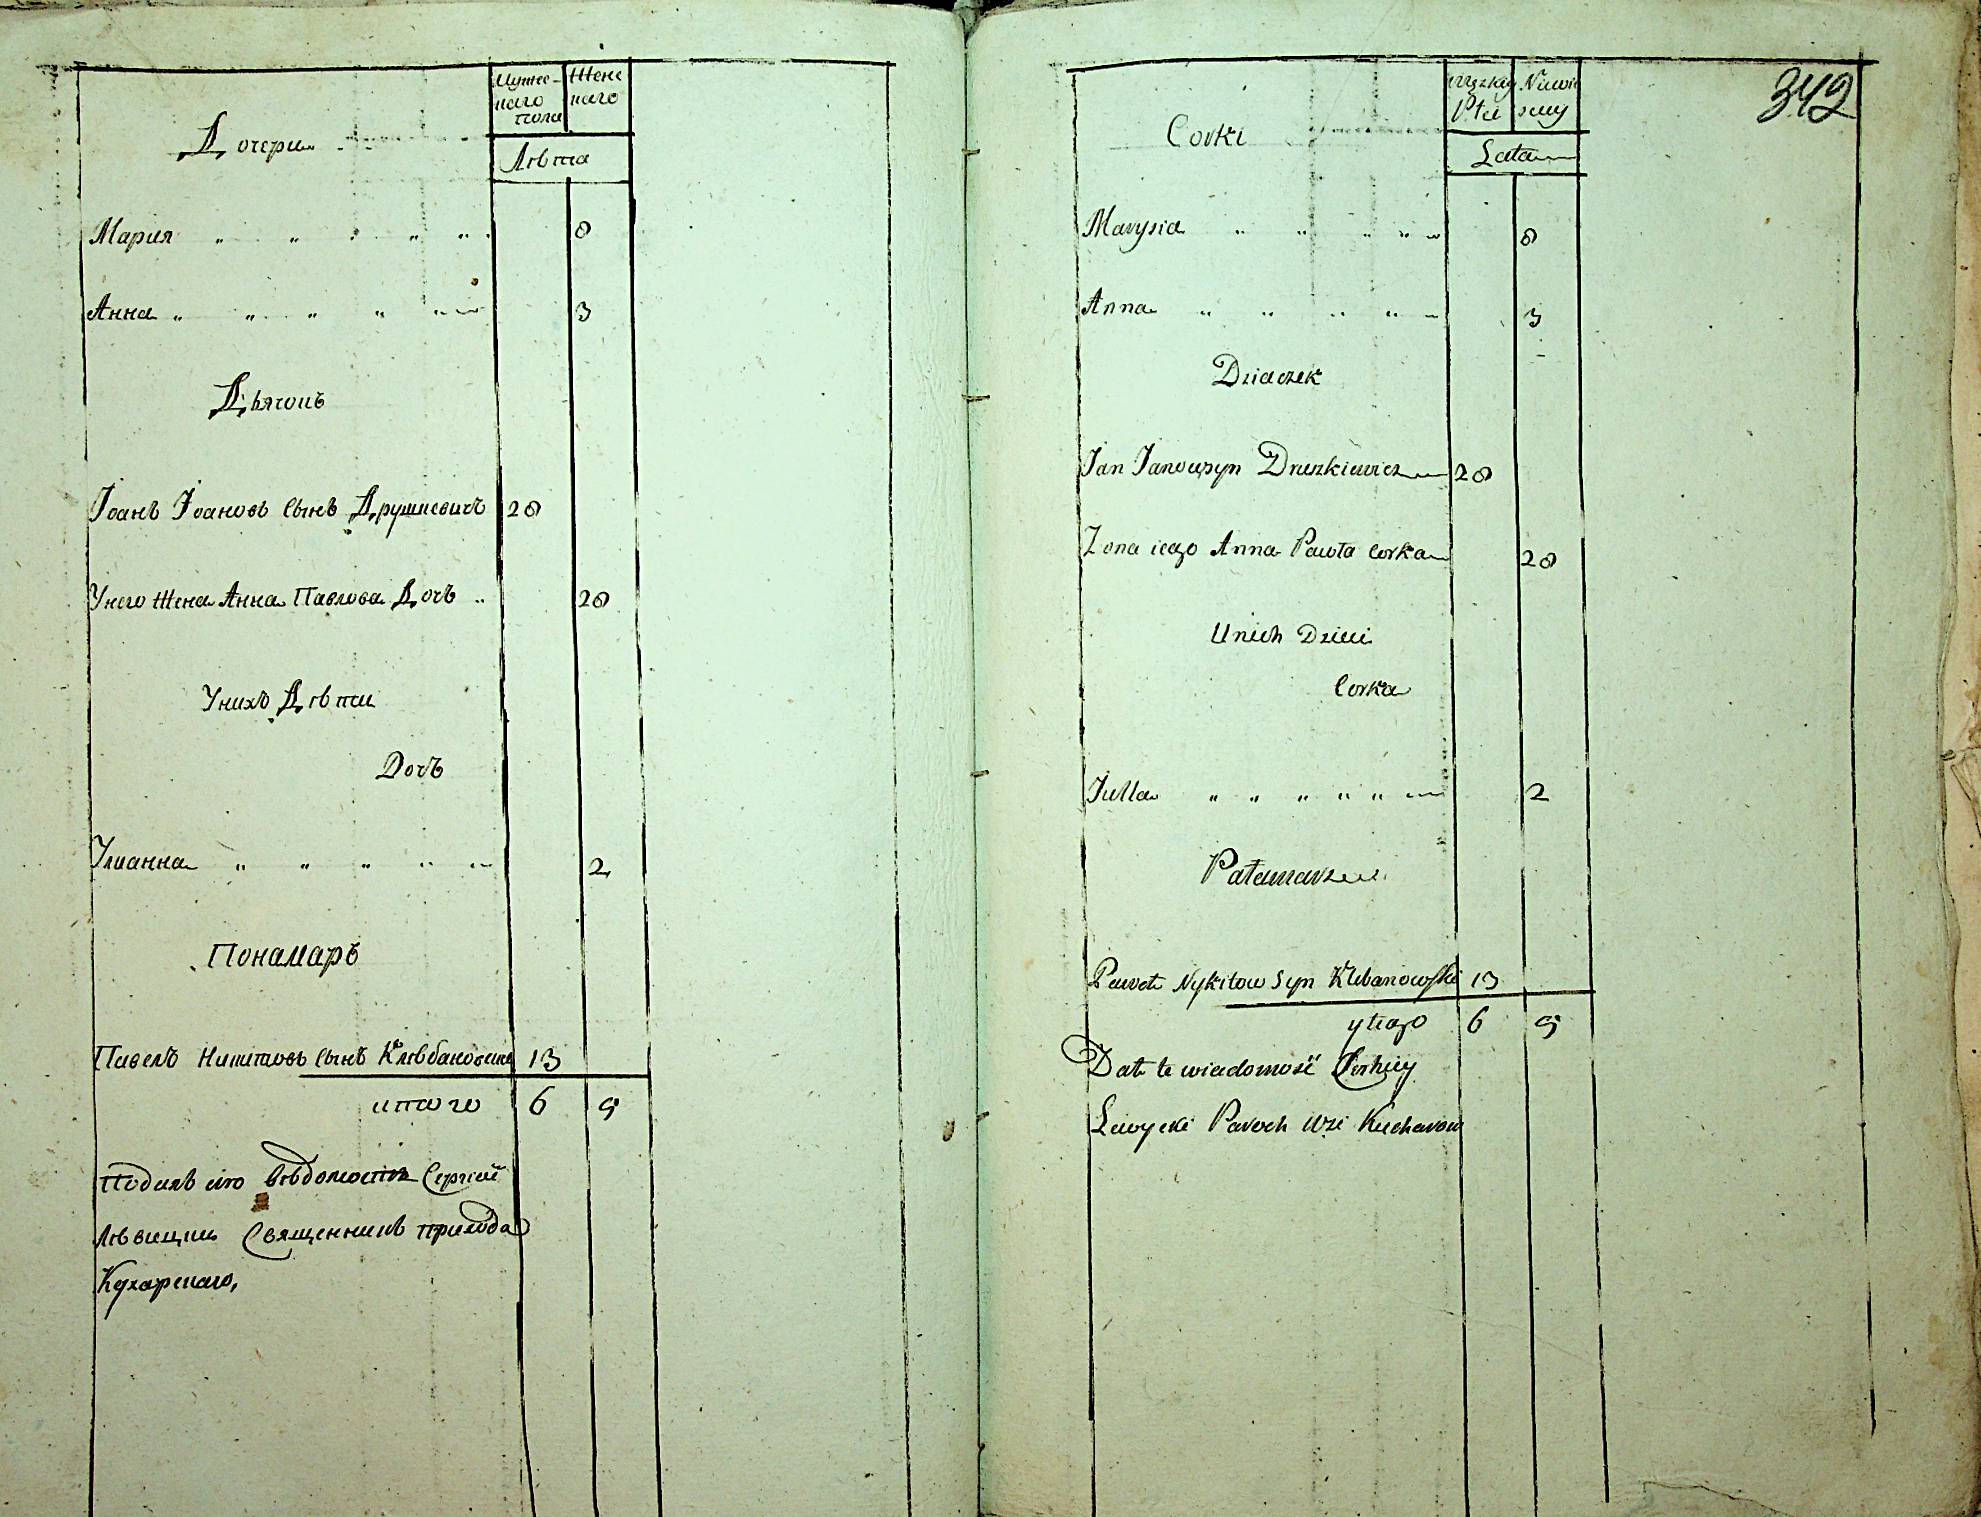 Мужес-
наго
пола
Женс
наго
Дочери
Лѣта
Мария „ „ „ „ „ 8
Анна „ „ „ „ „ 3
Дьячокъ
Іоанъ Іоановъ Сынъ Друшкевичъ 28
Унего Жена Анна Павлова Дочъ „ 28
Унихъ Дѣти
Дочъ
Улианна „ „ „ „ „ 2
Пономаръ
Павелъ Никитовъ Сынъ Клѣбановски 13
итого 6 9
Подалъ сию Вѣдомость Сергий
Лѣвицки Священникъ прихода
Кухарскаго,
342
Męzkey
Płci
Niewie
sciey
Corki
Lata
Marysia „ „ „ „ „ 8
Anna „ „ „ „ „ 3
Dziaczek
Jan Janow syn Druszkiewicz 28
Zona iego Anna Pawła Corka 28
Unich Dzieci
Corka
Julla „ „ „ „ „ 2
Pałamarz
Paweł Nykitow Syn Klebanowski 13
ytego 6 9
Dał te wiadomość Serhiy
Lewycki Paroch Wsi Kucharow